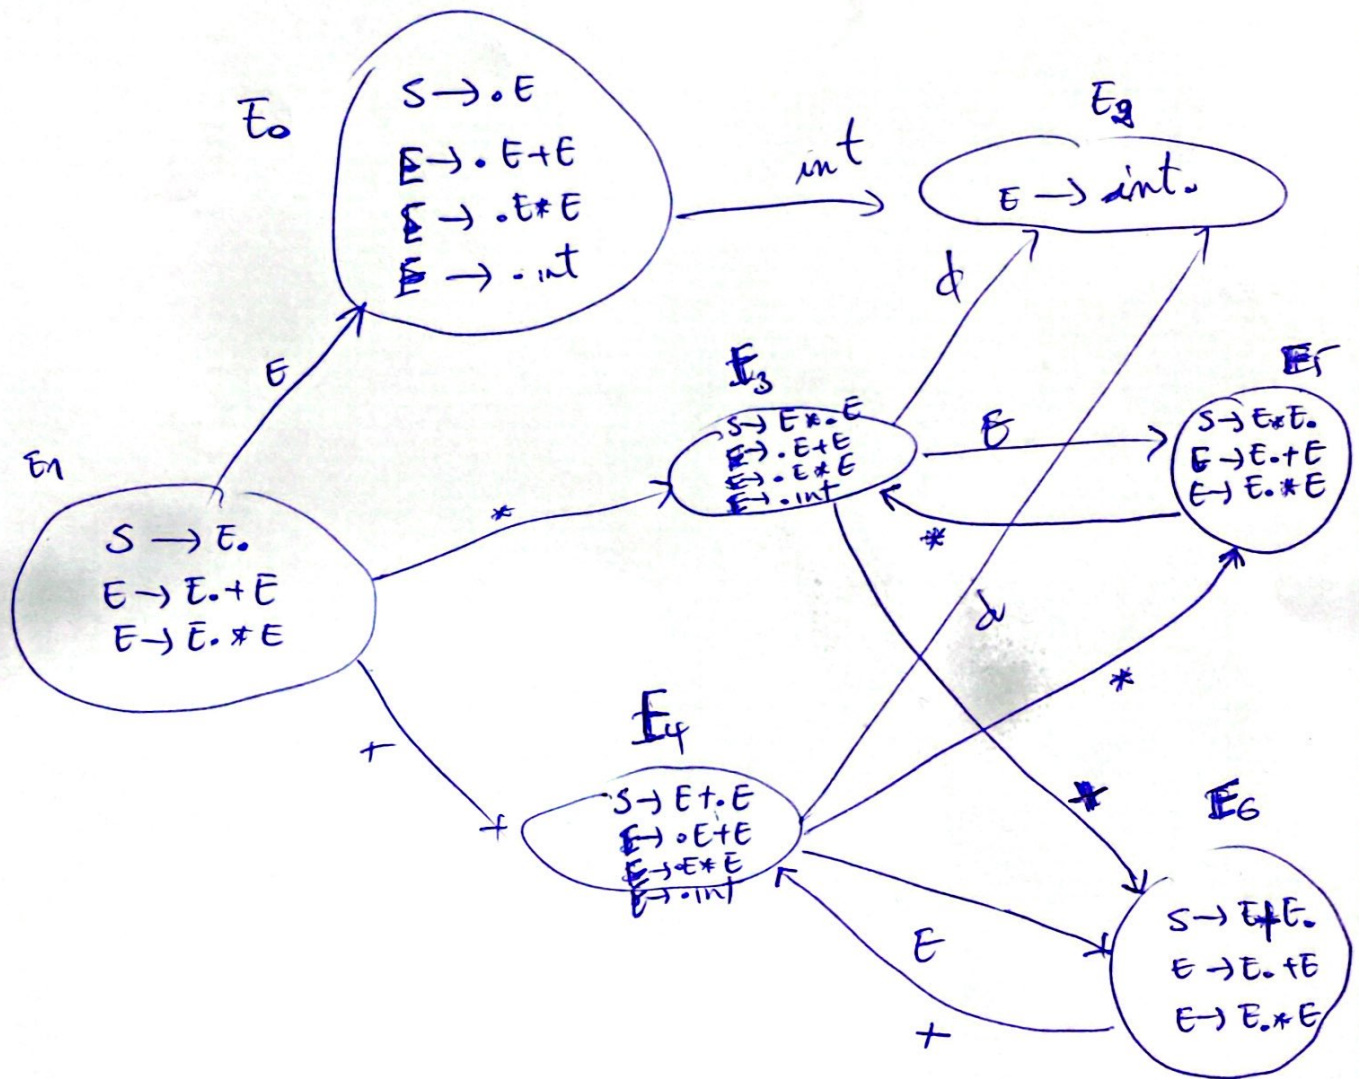 E0
S → .E
E → . E+E
E → .E*E
E → .int
int
E2
E → int.
E
d
E3
S → E*.E
E → .E+E
E → .E*E
E → .int
E
*
E5
S → E*E.
E → E.+E
E → E.*E
E1
S → E.
E → E.+E
E → E.*E
*
+
d
*
*
E4
S → E+.E
E → .E+E
E → .E*E
E → .int
E
+
E6
S → E+E.
E → E.+E
E → E.*E